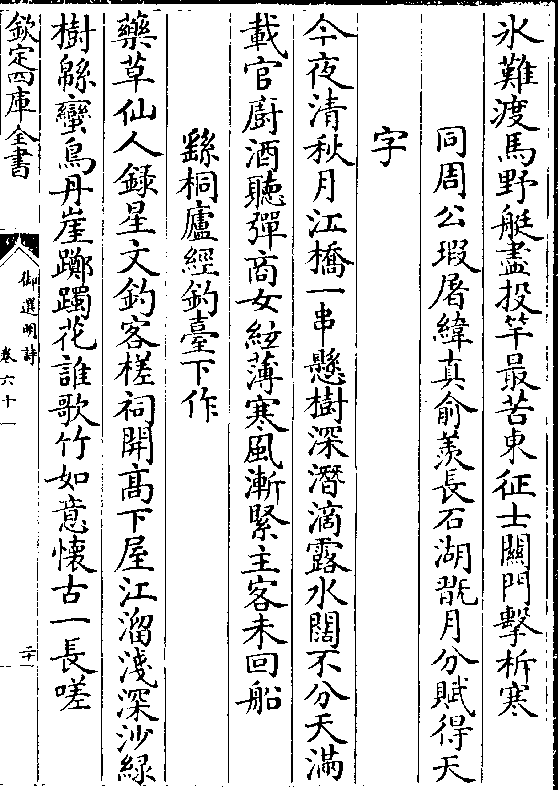 氷難渡馬野艇盡投竿最苦東征士關門擊柝寒
同周公瑕屠緯真俞羨長石湖翫月分賦得天
字
今夜清秋月江橋一串懸樹深潛滴露水闊不分天滿
載官廚酒聽彈商女絃薄寒風漸緊主客未回船
繇桐廬經釣臺下作
藥草仙人録星文釣客槎祠開髙下屋江溜淺深沙緑
樹緜蠻鳥丹崖躑躅花誰歌竹如意懷古一長嗟
欽定四庫全書
御選明詩
卷六十一
二十